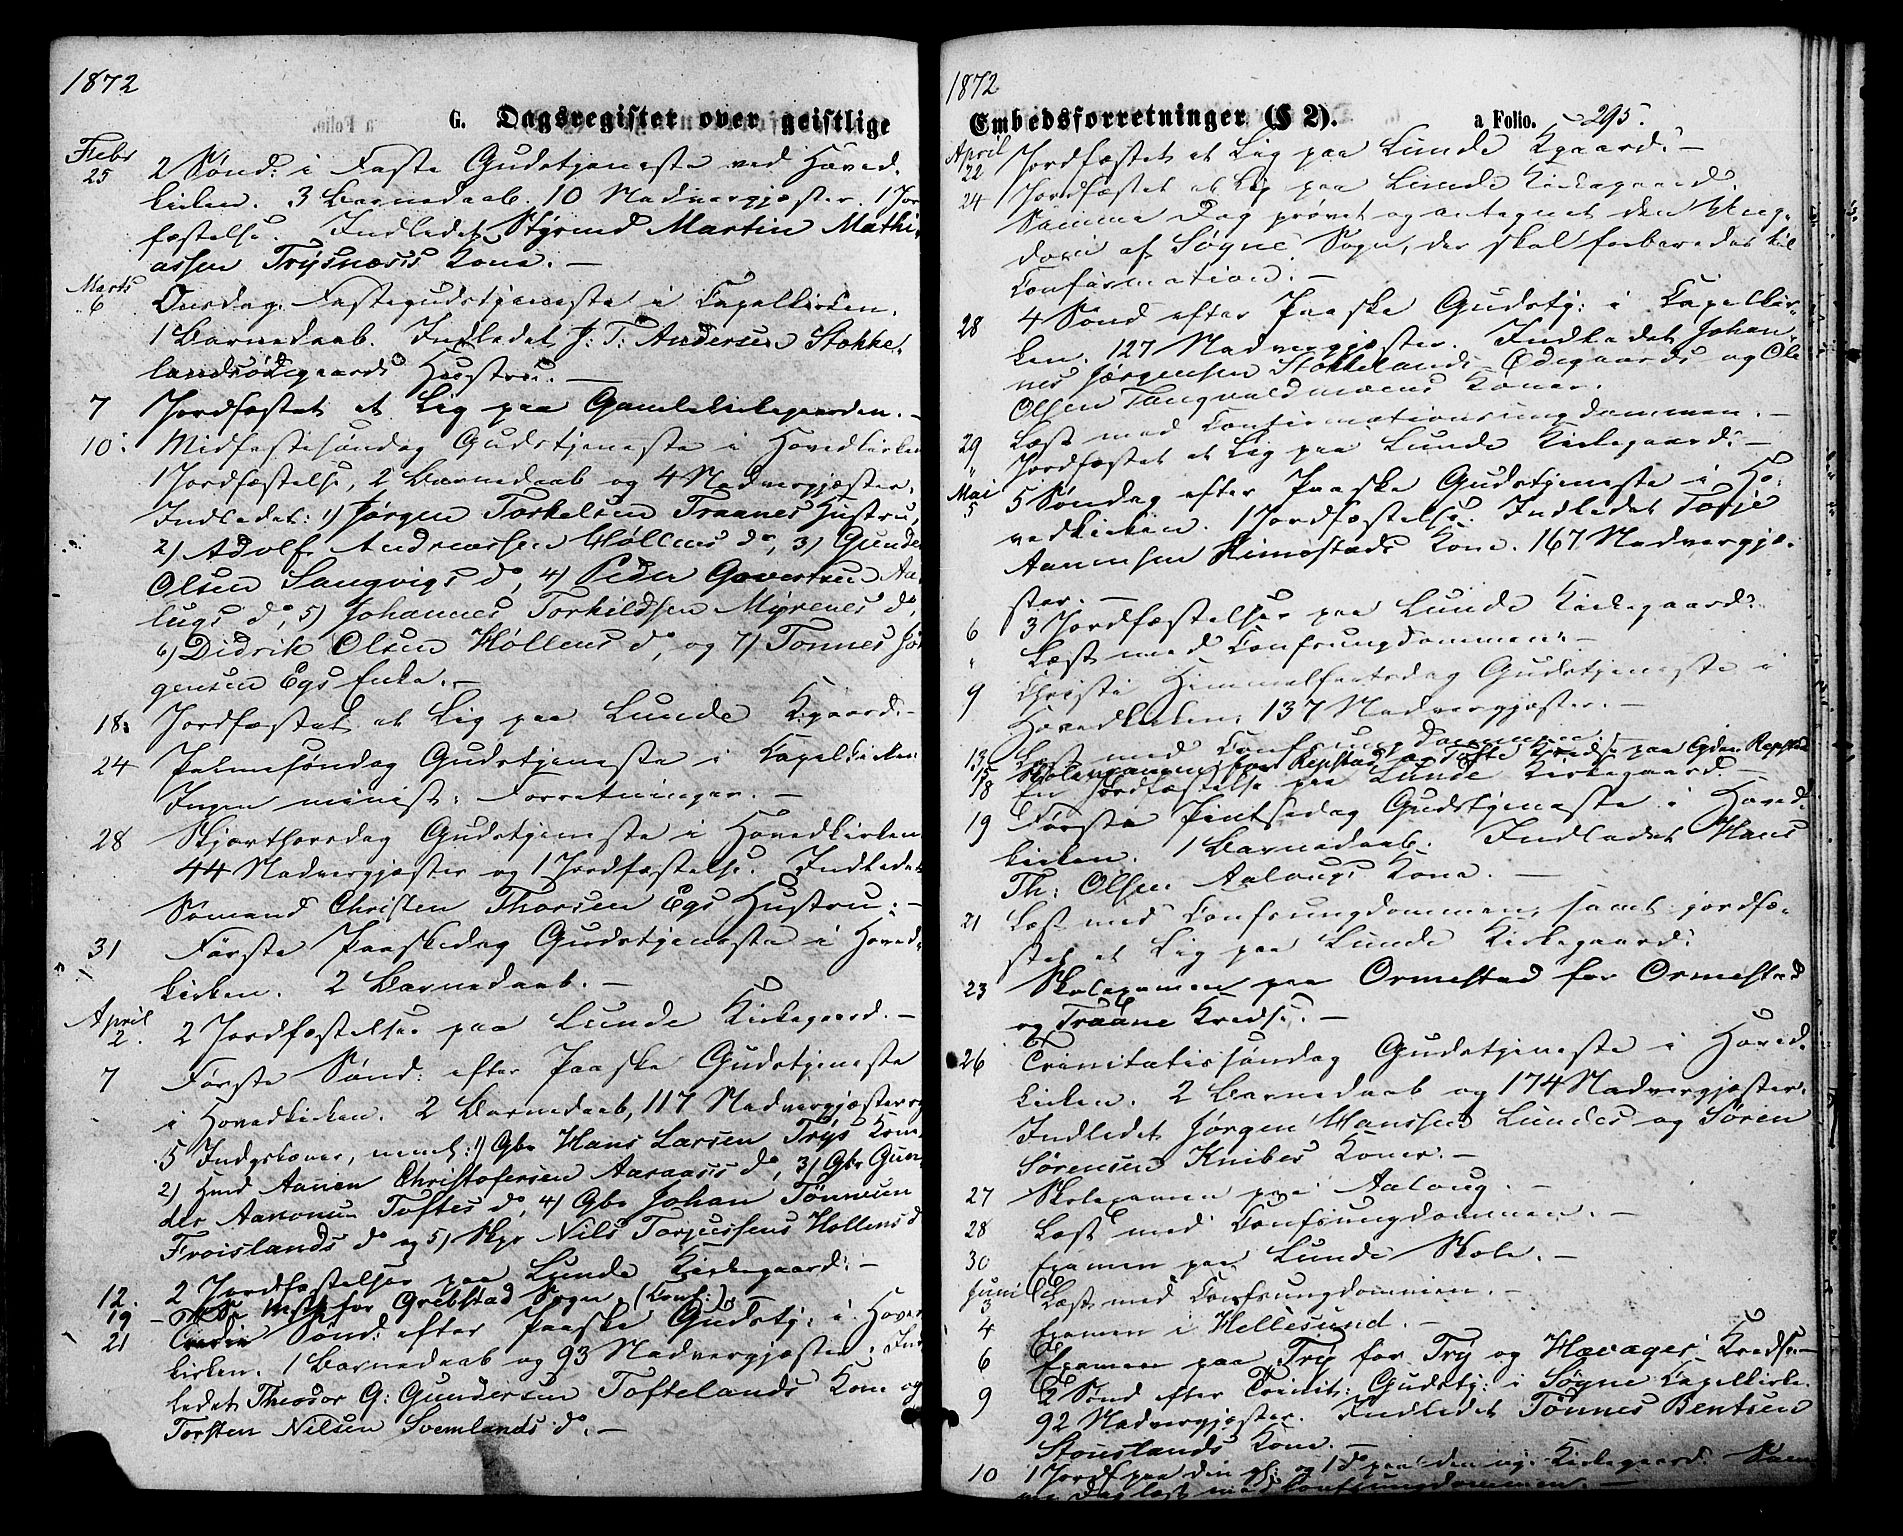 1872
G. Dagsregister over geistlige
Febr
25 2 Sønd: i Faste Gudstjeneste ved Hoved-
kirken. 3 Barnedaab. 10 Nadvergjæster. 1 Jord
fæstelse. Indledet Styrmd Martin Mathi-
assen Trysnæss Kone. —
Marts
6 Onsdag: Fastegudstjeneste i Capelkirken.
1 Barnedaab. Indledet J: T: Andersen Stokke-
landsødegaards Hustru. —
7 Jordfæstet et Lig paa Gamlekirkegaarden. —
10: Midfastesøndag Gudstjeneste i Hovedkirken
1 Jordfæstelse, 2 Barnedaab og 4 Nadvergjæster.
Indledet: 1) Jørgen Torkelsen Traanes Hustru,
2) Adolf Andreassen Høllens do, 3) Gunder
Olsen Langvigs do, 4) Peder Govertsen Aa-
lugs do, 5) Johannes Torkildsen Myrenes do,
6) Didrik Olsen Høllens do, og 7) Tønnes Jør
gensen Egs Enke. —
18: Jordfæstet et Lig paa Lunde Kgaard. —
24 Palmesøndag Gudstjeneste i Capelkirken
Ingen minist: Forretninger. —
28 Skjærthorsdag Gudstjeneste i Hovedkirken
44 Nadvergjæster og 1 Jordfæstelse. Indledet
Sømand Christen Thorsen Egs Hustru: —
31 Første Paaskedag Gudstjeneste i Hoved-
kirken. 2 Barnedaab. —
April
2. 2 Jordfæstelser paa Lunde Kirkegaard. —
7 Første Sønd: efter Paaske Gudstjeneste
i Hovedkirken. 2 Barnedaab, 117 Nadvergjæster og
5 Indgskoner, neml: 1) Gbr Hans Larsen Trys Kone,
2) Hmd Aanen Christofersen Aaraass do, 3) Gbr Gun-
der Aanonsen Toftes do, 4) Gbr Johan Tønnesen
Frøislands do og 5) Skpr Nils Torjussens Høllens do
12. 2 Jordfæstelser paa Lunde Kirkegaard: —
19 for Grebstad Sogn (Conf:). —
21 Sønd: efter Paaske Gudstj: i Hoved
kirken. 1 Barnedaab og 93 Nadvergjæster. Ind
ledet Theodor G: Gundersen Toftelands Kone og
Torsten Nilsen Svemlands do. —
1872
Embedsforretninger (§ 2). a Folio. 295.
April
22 Jordfæstet et Lig paa Lunde Kgaard: —
24 Jordfæstet et Lig paa Lunde Kirkegaard.
Samme Dag prøvet og antegnet den Ung-
dom af Søgne Sogn, der skal forberedes til
Confirmation. —
28 4 Sønd efter Paaske Gudstj: i Capelkir-
ken. 127 Nadvergjæster. Indledet Johan-
nes Jørgensen Stokkelands Ødegaards og Ole
Olsen Tangvaldmoens Koner.
29 Læst med Confirmationsungdommen. —
" Jordfæstet et Lig paa Lunde Kirkegaard: —
Mai
5 5 Søndag efter Paaske Gudstjeneste i Ho-
vedkirken. 1 Jordfæstelse. Indledet Torje
Aanensen Kimestads Kone. 167 Nadvergjæ-
ster. —
6 3 Jordfæstelser paa Lunde Kirkegaard:
" Læst med Confsungdommen. —
9 Christi Himmelfartsdag Gudstjeneste i
Hovedkirken. 137 Nadvergjæster. —
13 Læst med Confsungdommen. —
15 Skoleexamen for Repstad og Tofte Kredse paa Repstad
18 En Jordfæstelse paa Lunde Kirkegaard. —
19 Første Pintsedag Gudstjeneste i Hoved-
kirken. 1 Barnedaab. Indledet Hans
Th: Olsen Aalougs Kone. —
21 Læst med Confsungdommen, samt jordfæ-
stet et Lig paa Lunde Kirkegaard:
23 Skolexamen paa Ormestad for Ormestad
og Traane Kredse. —
26 Trinitatissøndag Gudstjeneste i Hoved-
kirken. 2 Barnedaab og 174 Nadvergjæster.
Indledet Jørgen Hanssen Lundes og Søren
Sørensen Knibes Koner. —
27 Skolexamen paa Aaloug. —
28 Læst med Confsungdommen. —
30 Examen paa Lunde Skole. —
Juni
3 Læst med Confsungdommen. —
4 Examen i Hellesund. —
6 Examen paa Try for Try og Havager Kredse. —
9 2 Sønd efter Trinit: Gudstj: i Søgne Capelkirke.
92 Nadvergjæster. Indledet Tønnes Bentsen
Stouslands Kone. —
10 1 Jordf paa den gl: og 1 do paa den ny Kirkegaard. Sam
me Dag læst med Confsungdommen. —